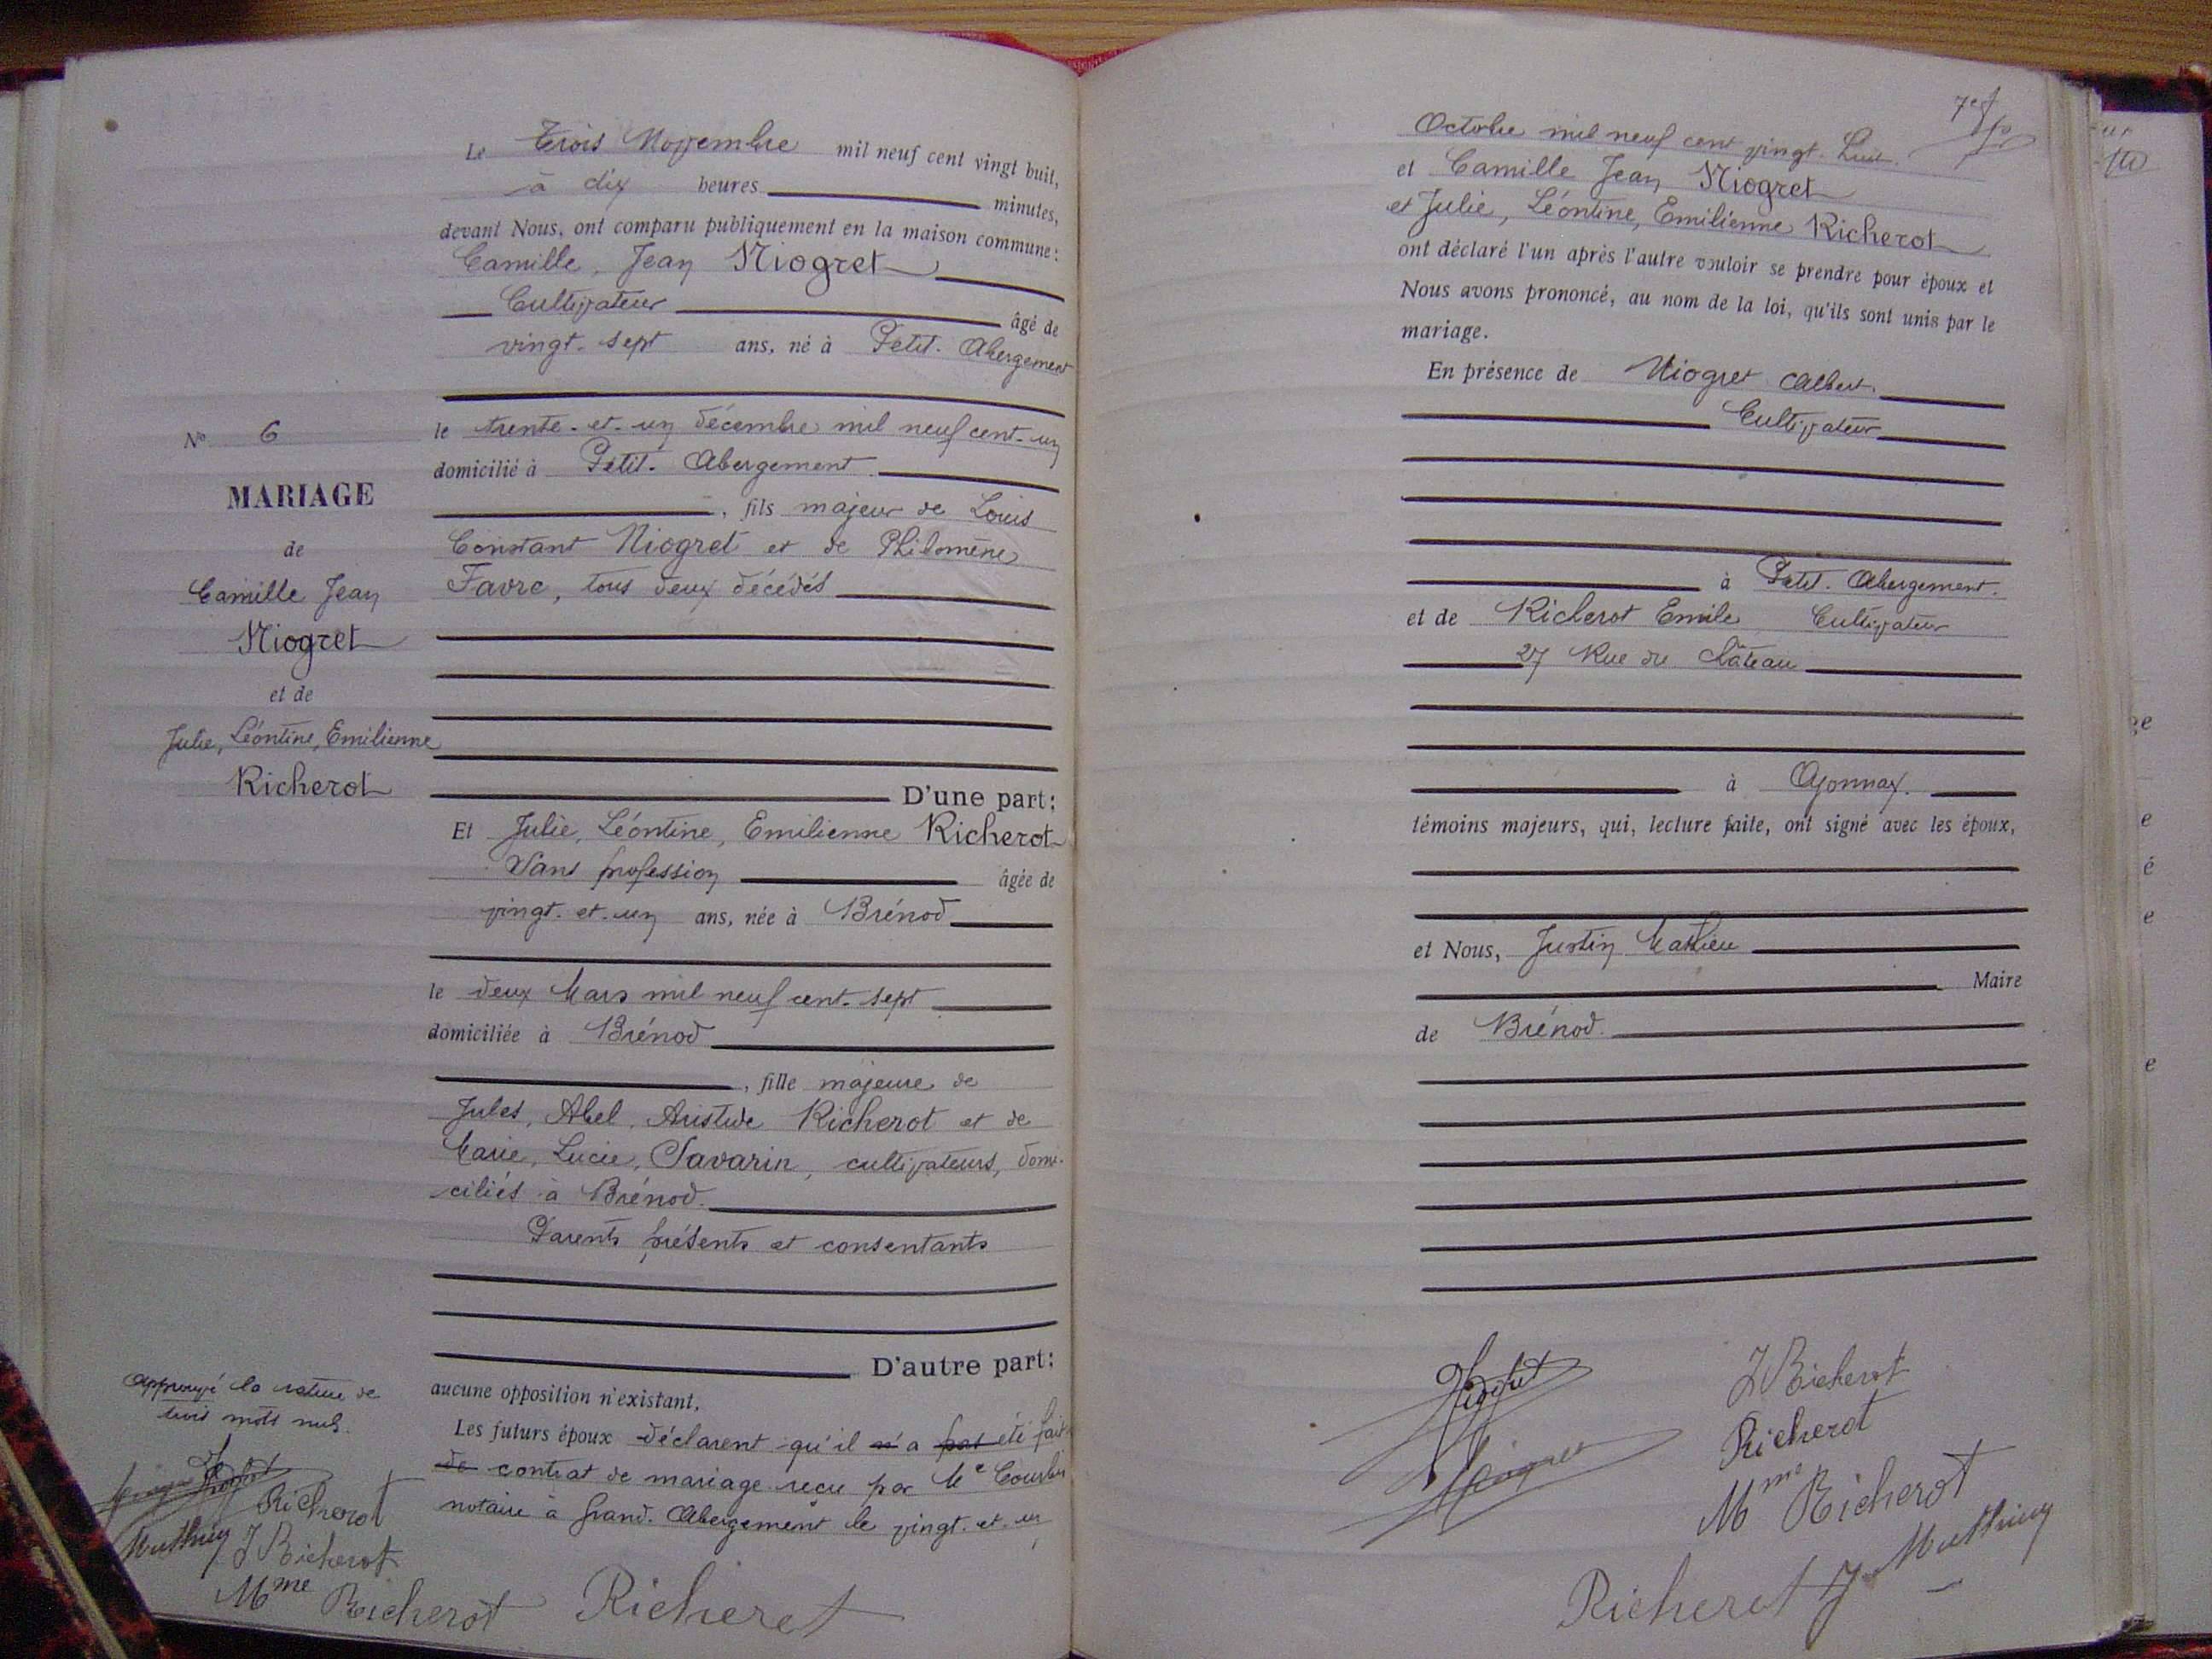 Le Trois Novembre mil neuf cent vingt huit,
à dix heures minutes,
devant Nous, ont comparu publiquement en la maison commune :
Camille, Jean Niogret
Cultivateur âgé de
vingt-sept ans, né à Petit-Abergement
le trente-et-un décembre mil neuf cent-un
domicilié à Petit-Abergement
, fils majeur de Louis
Constant Niogret et de Philomène
Favre, tous deux décédés
D'une part :
Et Julie, Léontine, Emilienne Richerot
Sans profession âgée de
vingt-et-un ans, née à Brénod
le deux Mars mil neuf cent-sept
domiciliée à Brénod
, fille majeure de
Jules, Abel, Aristide Richerot et de
Marie, Lucie, Savarin, cultivateurs, domi-
ciliés à Brénod.
Parents présents et consentants
D'autre part :
aucune opposition n'existant,
Les futurs époux déclarent qu'il n'a pas été fait
de contrat de mariage reçu par Me
notaire à Grand-Abergement le vingt-et-un
No 6
MARIAGE
de
Camille Jean
Niogret
et de
Julie, Léontine, Emilienne
Richerot
Approuvé la rature de
trois mots nuls.
Richerot
Mathieu J Richerot
Mme Richerot Richerot
7e f
Octobre mil neuf cent vingt-huit.
et Camille Jean Niogret
et Julie, Léontine, Emilienne Richerot
ont déclaré l'un après l'autre vouloir se prendre pour époux et
Nous avons prononcé, au nom de la loi, qu'ils sont unis par le
mariage.
En présence de Niogret Albert.
Cultivateur
à Petit-Abergement.
et de Richerot Emile Cultivateur
27 Rue du Château
à Oyonnax.
témoins majeurs, qui, lecture faite, ont signé avec les époux,
et Nous, Justin Mathieu
Maire
de Brénod.
Niogret J Richerot
Niogret Richerot
Mme Richerot
Richerot J Mathieu